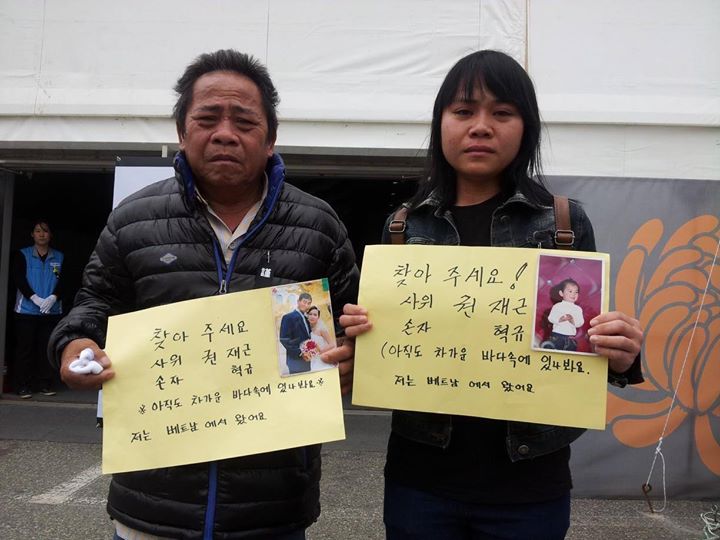 찾아 주세요
사위 권 재근
손자 혁규
※아직도 차가운 바다속에 있나봐요※
저는 베트남에서 왔어요
찾아 주세요!
사위 권 재근
손자 혁규
(아직도 차가운 바다속에 있나봐요.
저는 베트남에서 왔어요